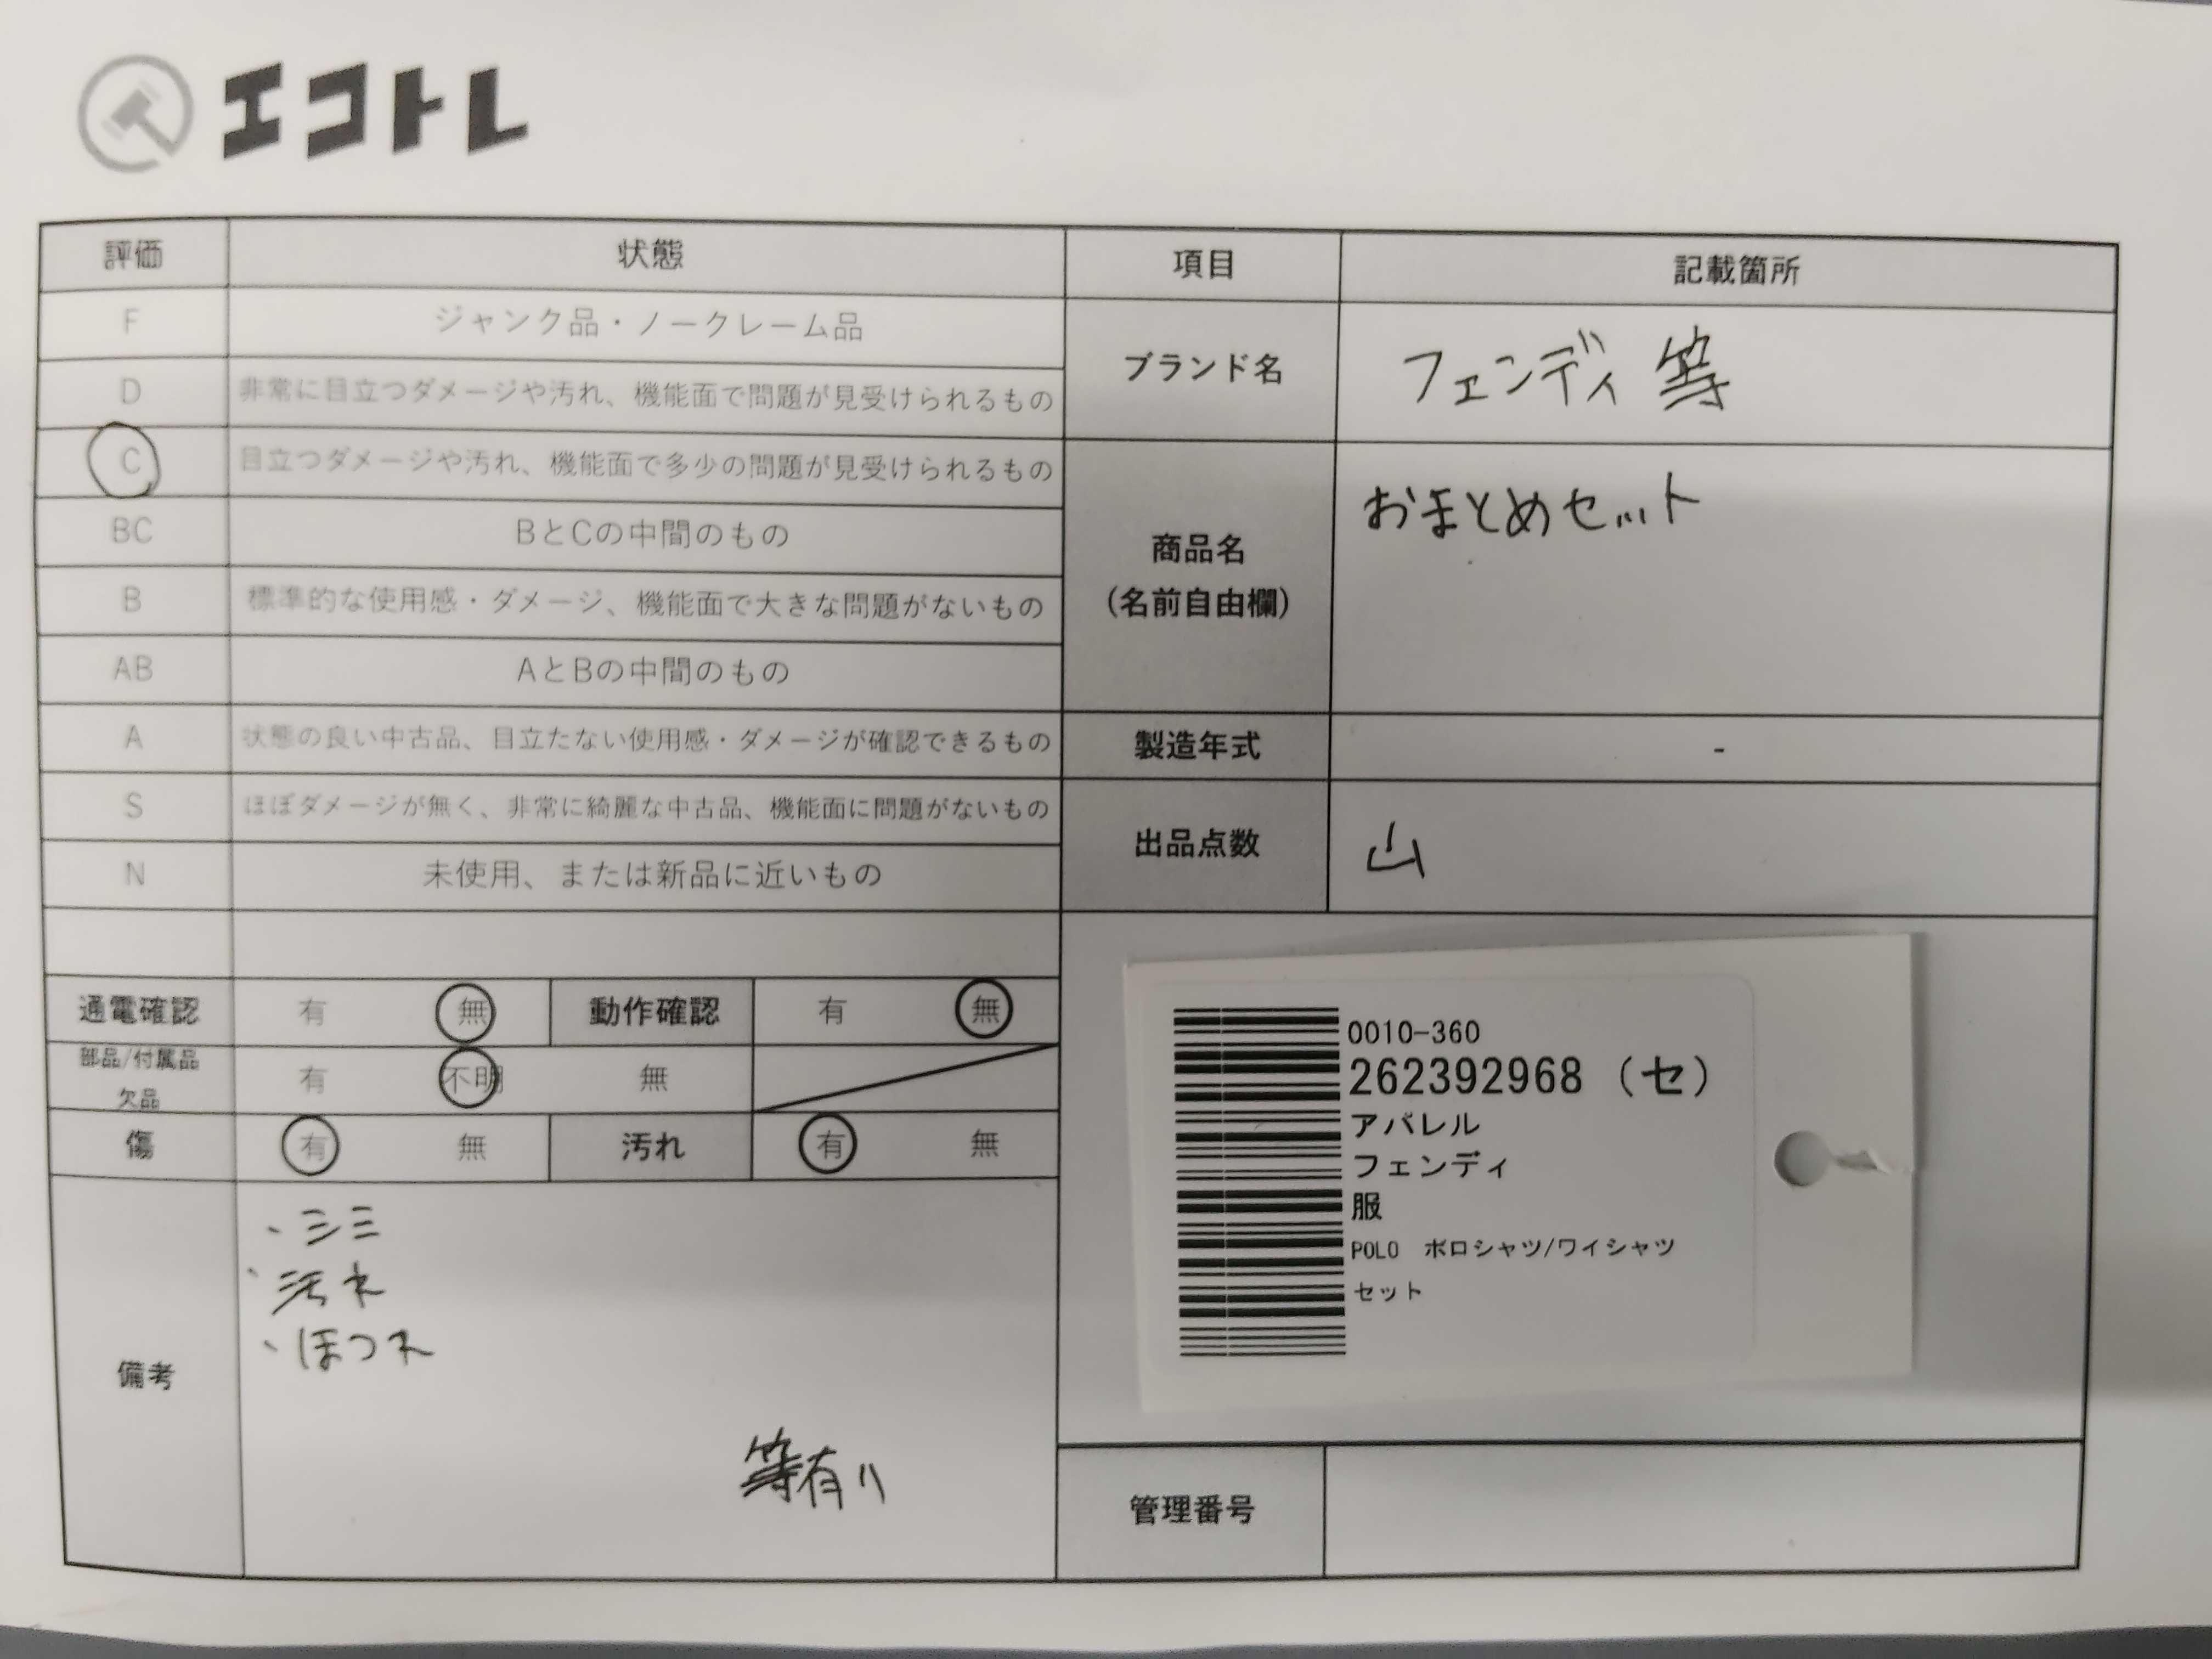 エコトレ
評価 状態
F ジャンク品・ノークレーム品
D 非常に目立つダメージや汚れ、機能面で問題が見受けられるもの
C 目立つダメージや汚れ、機能面で多少の問題が見受けられるもの
BC BとCの中間のもの
B 標準的な使用感・ダメージ、機能面で大きな問題がないもの
AB AとBの中間のもの
A 状態の良い中古品、目立たない使用感・ダメージが確認できるもの
S ほぼダメージが無く、非常に綺麗な中古品、機能面に問題がないもの
N 未使用、または新品に近いもの
通電確認 有 無 動作確認 有 無
部品/付属品
欠品 有 不明 無
傷 有 無 汚れ 有 無
備考
・シミ
・汚れ
・ほつれ
等有り
項目 記載箇所
ブランド名 フェンディ 等
商品名
(名前自由欄)
おまとめセット
製造年式 -
出品点数 山
0010-360
262392968 (セ)
アパレル
フェンディ
服
POLO ポロシャツ/ワイシャツ
セット
管理番号